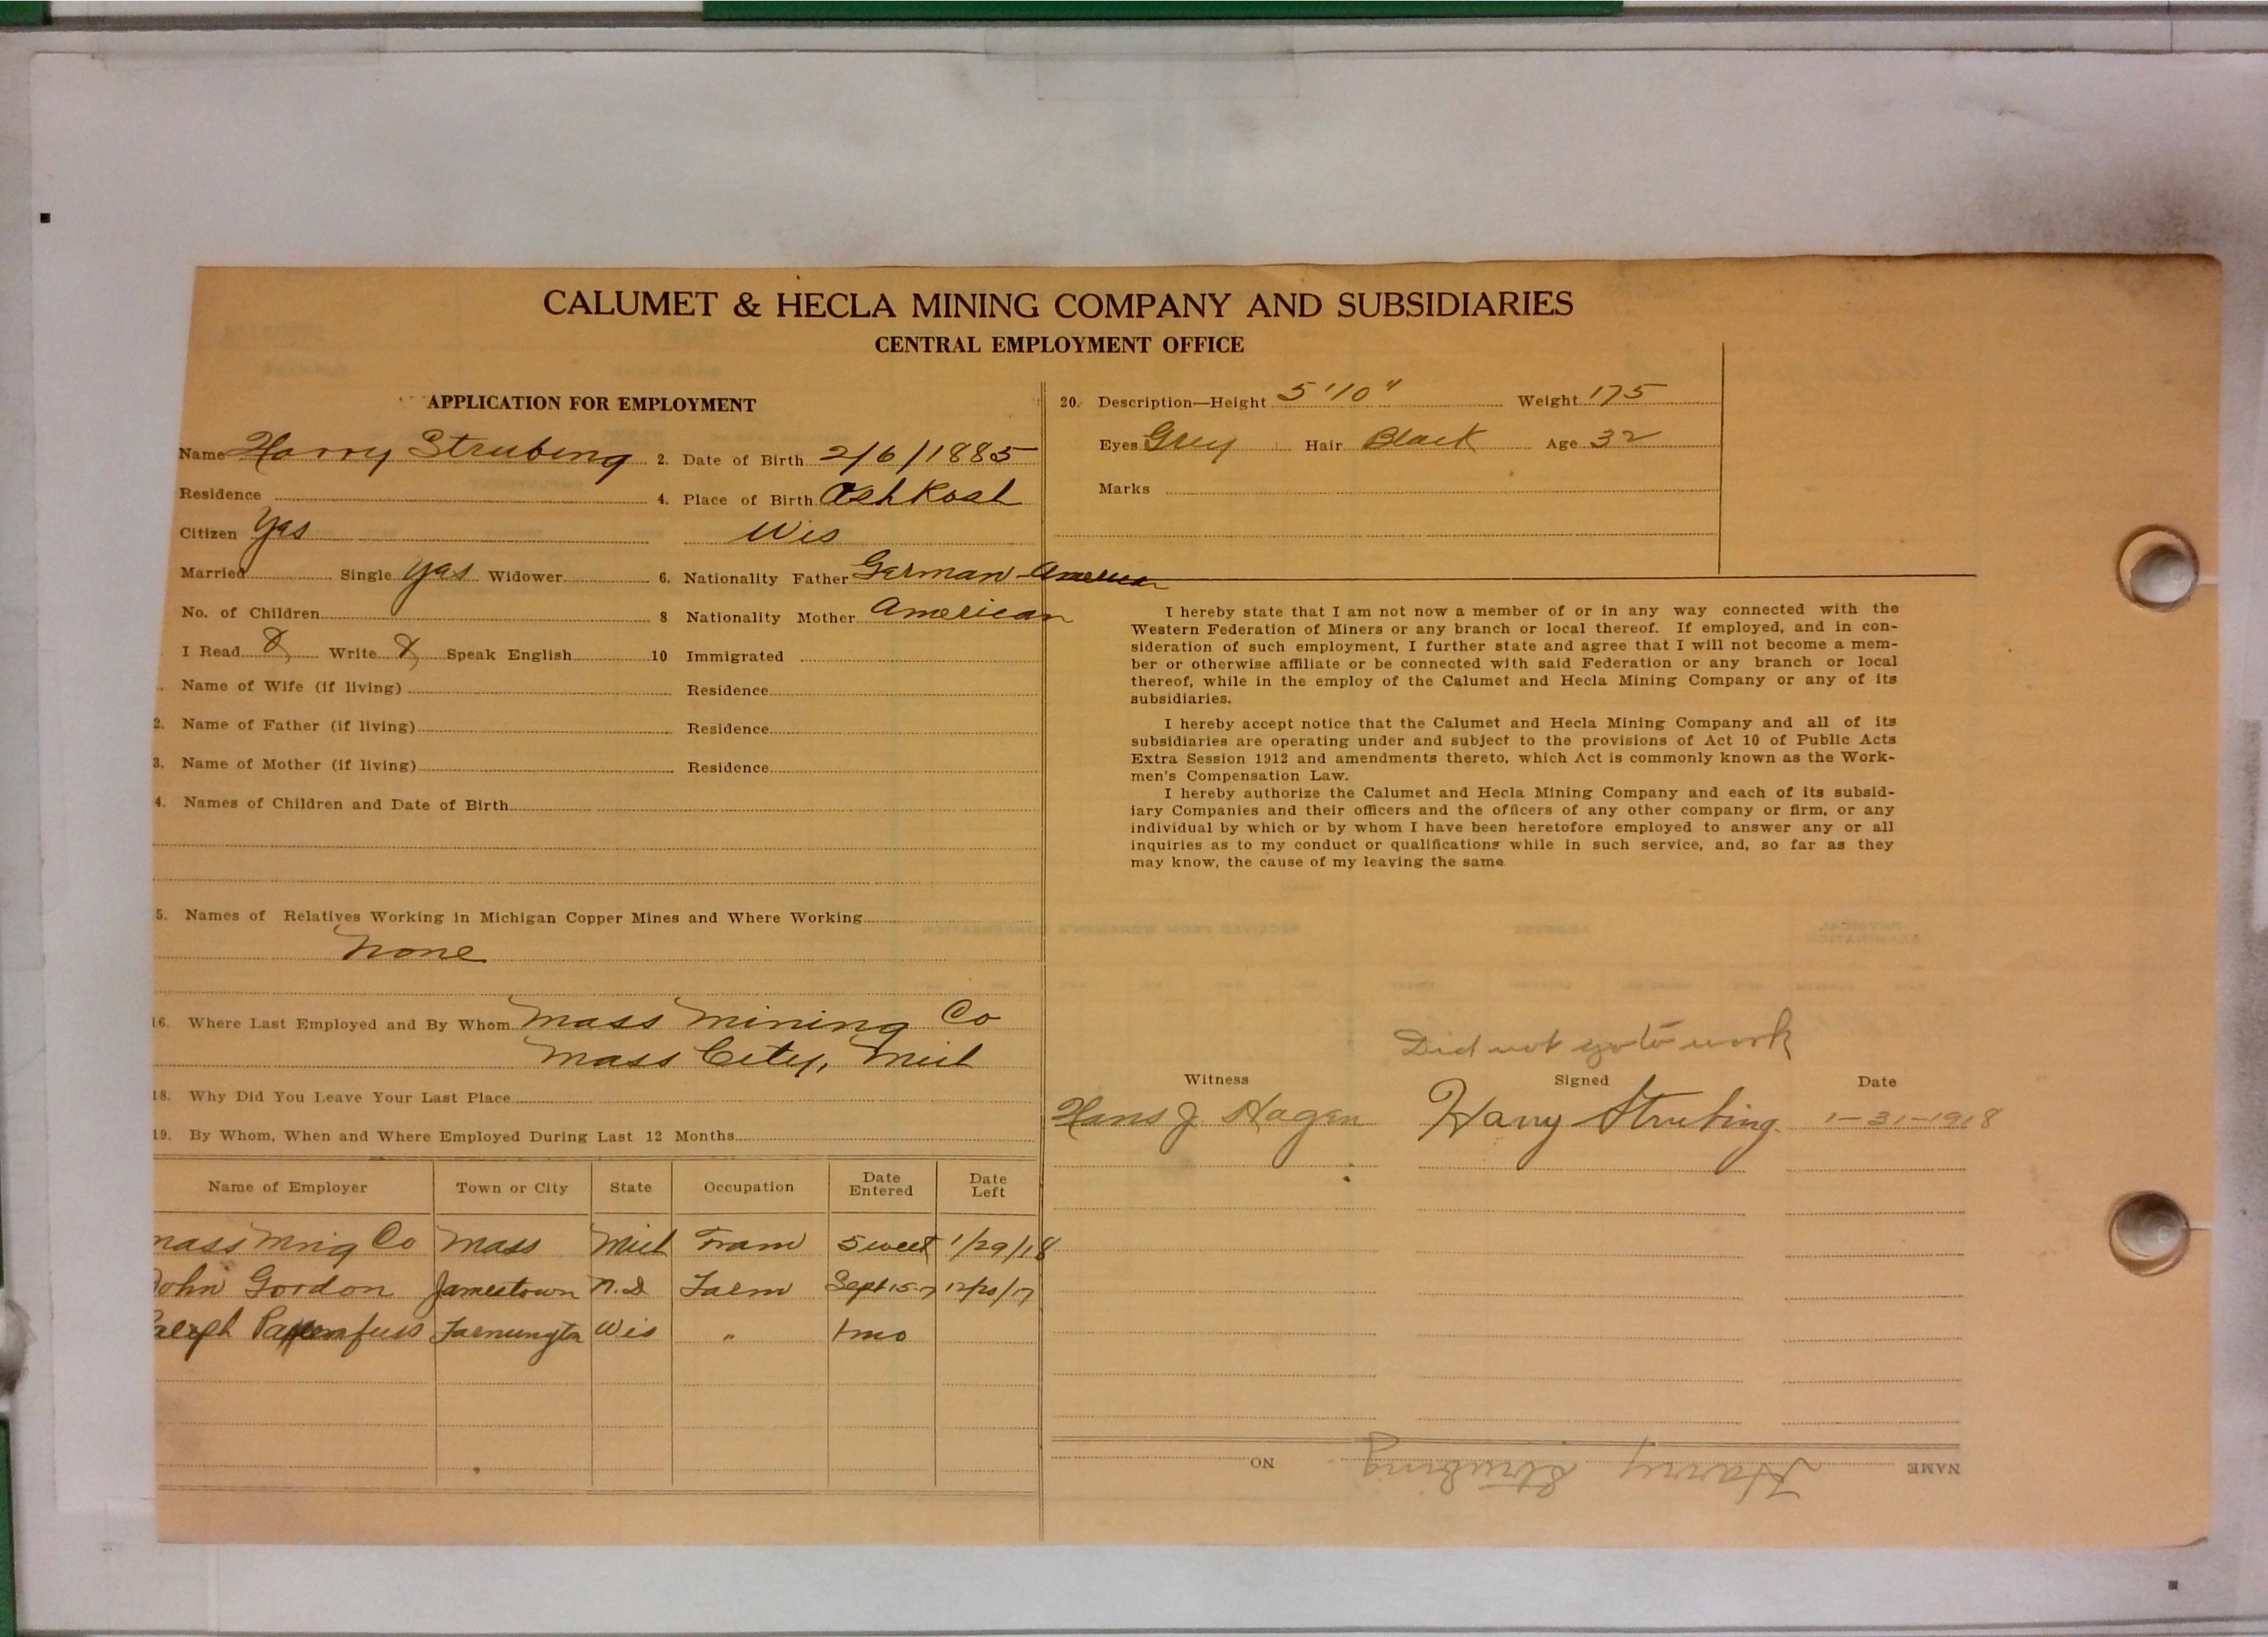 CALUMET & HECLA MINING COMPANY AND SUBSIDIARIES
CENTRAL EMPLOYMENT OFFICE
APPLICATION FOR EMPLOYMENT
Name Harry Strubing 2. Date of Birth 2/6/1885
Residence 4. Place of Birth Oshkosh
Citizen Yes Wis
Married Single yes Widower 6. Nationality Father German-American
No. of Children 8 Nationality Mother American
I Read X Write X Speak English 10 Immigrated
Name of Wife (if living) Residence
2. Name of Father (if living) Residence
3. Name of Mother (if living) Residence
4. Names of Children and Date of Birth
5. Names of Relatives Working in Michigan Copper Mines and Where Working
None
16. Where Last Employed and By Whom Mass Mining Co
Mass City, Mich
18. Why Did You Leave Your Last Place
19. By Whom, When and Where Employed During Last 12 Months
Name of Employer Town or City State Occupation Date Entered Date Left
Mass Mng Co Mass Mich Tram 1/29/18
John Gordon Jamestown N.D Farm Sept 15-17 12/20/17
Farmington Wis " 1 mo
20. Description—Height 5'10" Weight 175
Eyes Grey Hair Black Age 32
Marks
I hereby state that I am not now a member of or in any way connected with the
Western Federation of Miners or any branch or local thereof. If employed, and in con-
sideration of such employment, I further state and agree that I will not become a mem-
ber or otherwise affiliate or be connected with said Federation or any branch or local
thereof, while in the employ of the Calumet and Hecla Mining Company or any of its
subsidiaries.
I hereby accept notice that the Calumet and Hecla Mining Company and all of its
subsidiaries are operating under and subject to the provisions of Act 10 of Public Acts
Extra Session 1912 and amendments thereto, which Act is commonly known as the Work-
men's Compensation Law.
I hereby authorize the Calumet and Hecla Mining Company and each of its subsid-
iary Companies and their officers and the officers of any other company or firm, or any
individual by which or by whom I have been heretofore employed to answer any or all
inquiries as to my conduct or qualifications while in such service, and, so far as they
may know, the cause of my leaving the same
Did not go to work
Witness Signed Date
Hans J Hagen Harry Strubing 1-31-1918
NAME Harry Strubing NO